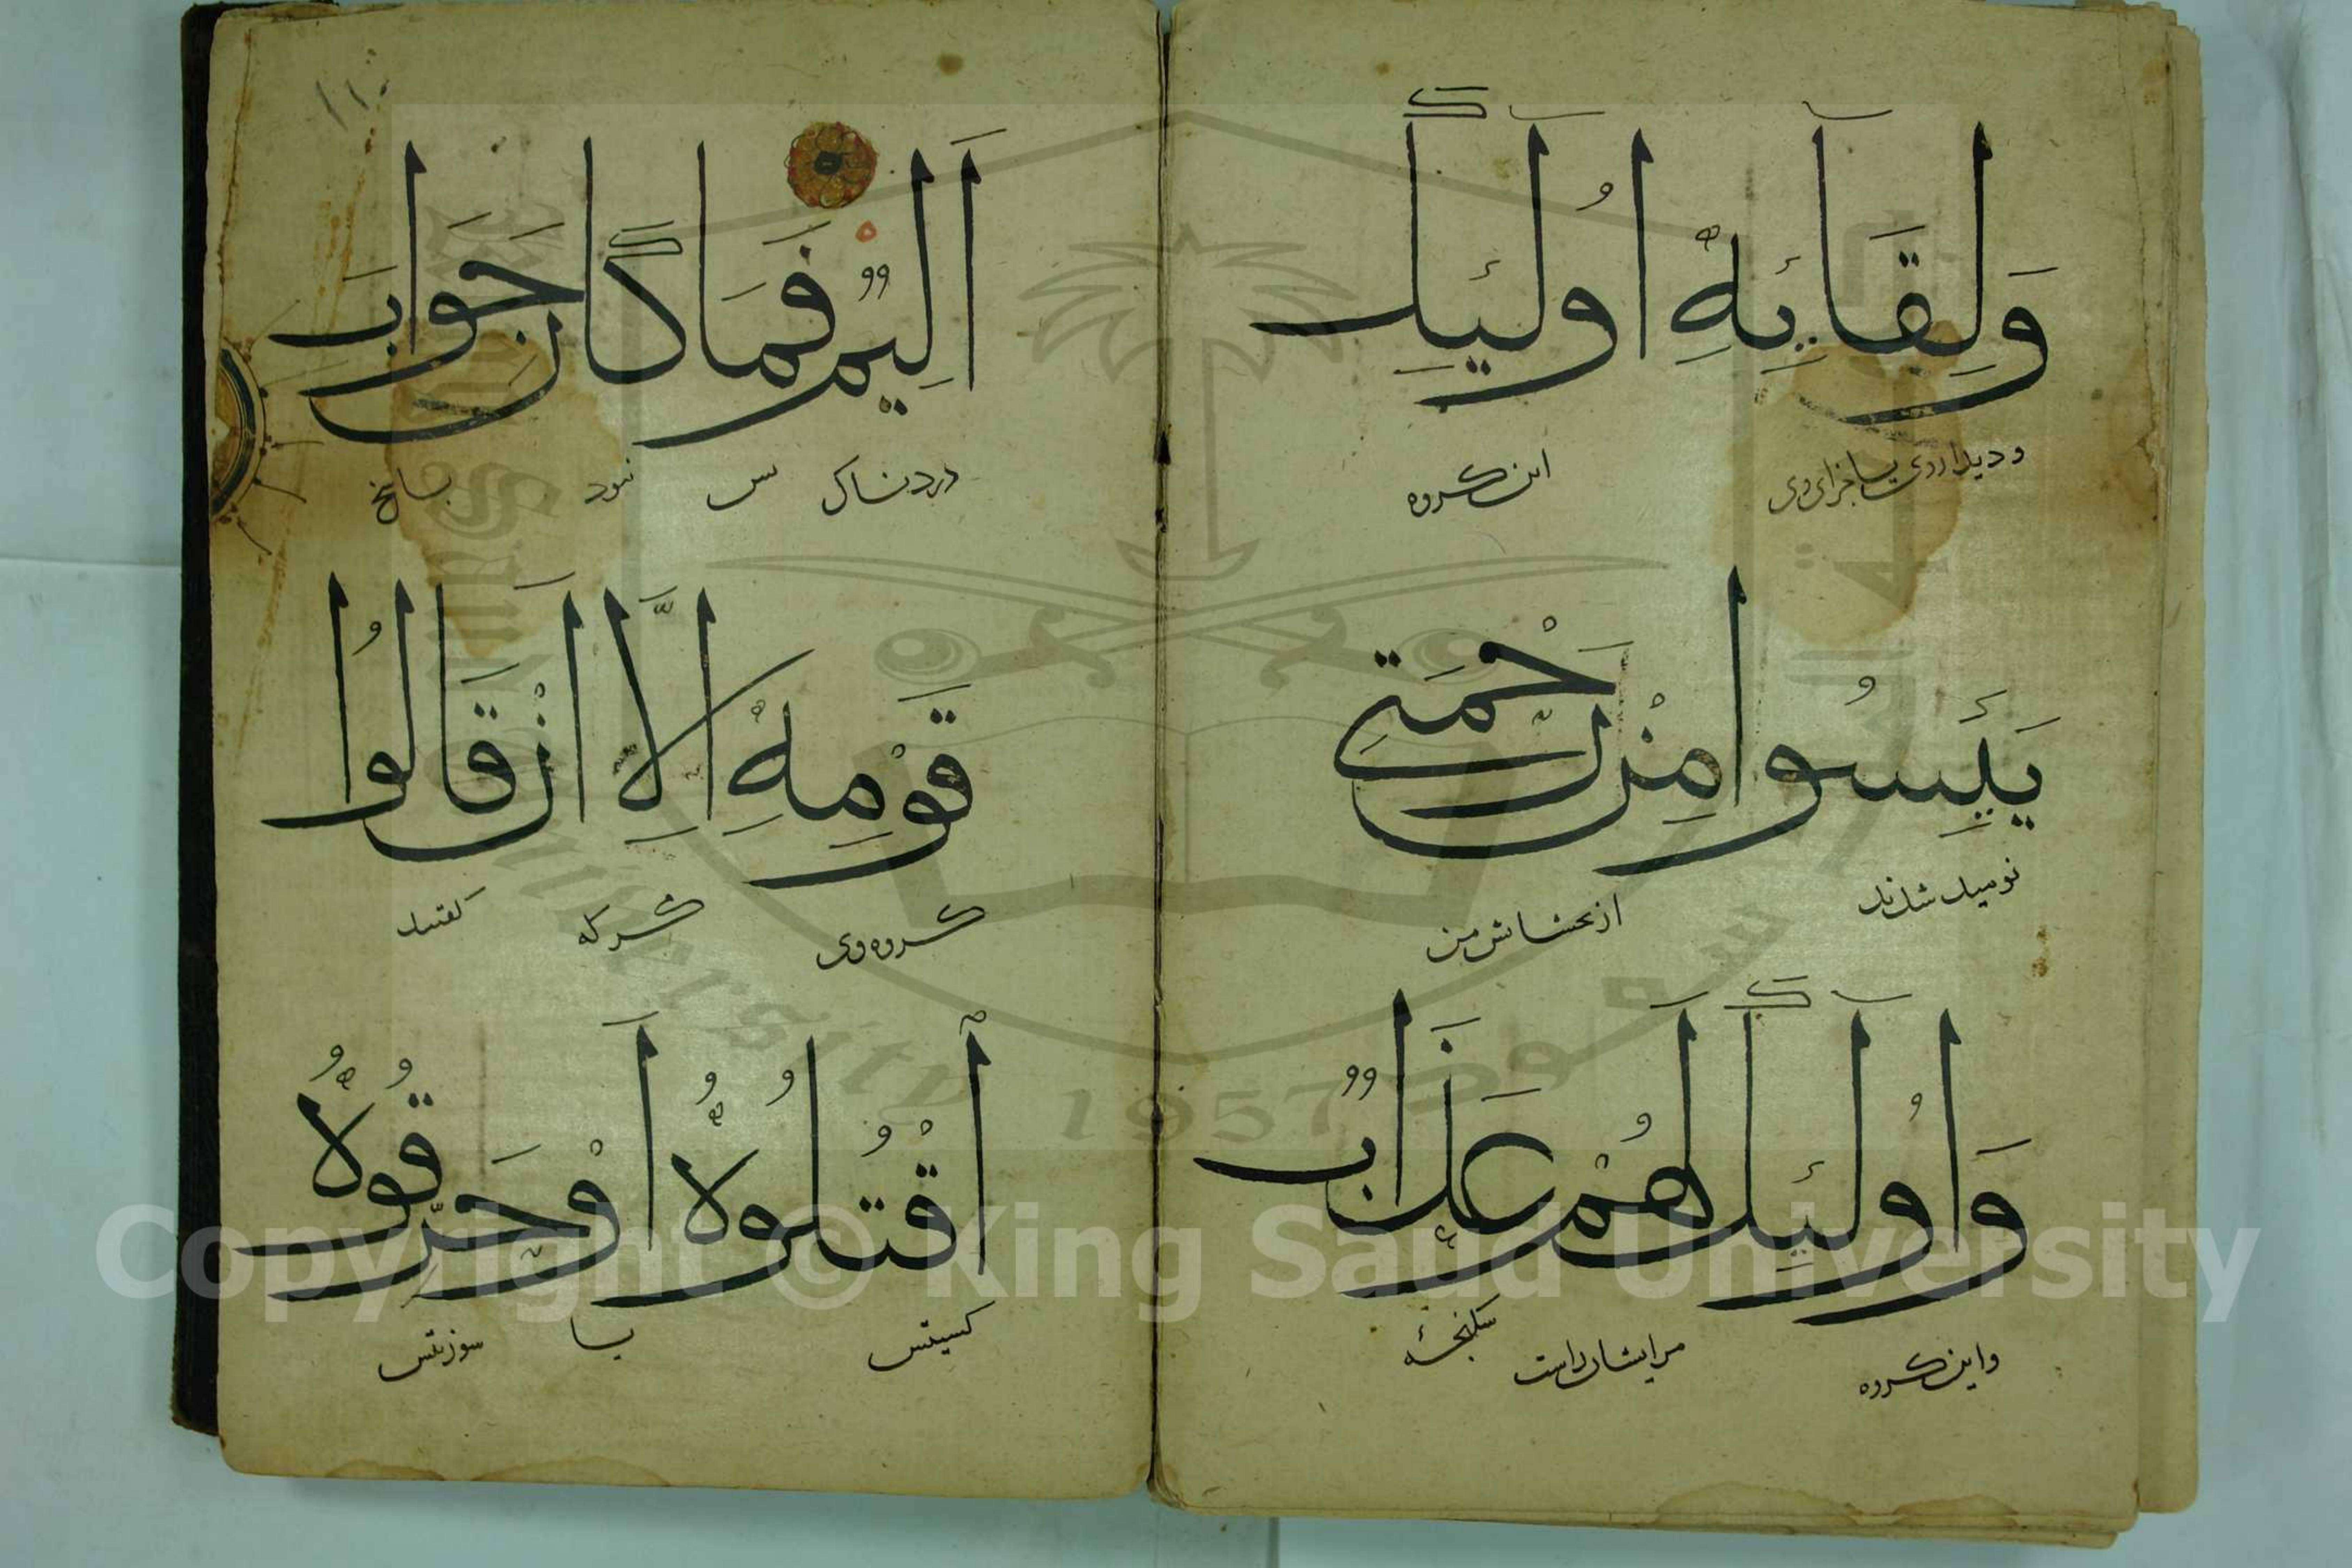 وَلِقَآئِهِ أُولَٓئِكَ
و دیدار روی یا جزای وی این کروه
يَئِسُوا مِنْ رَحْمَتِي
نومید شدند از بخشایش من
وَأُولَٓئِكَ لَهُمْ عَذَابٌ
و این کروه مر ایشان راست شکنجۀ
أَلِيمٌ فَمَا كَانَ جَوَابَ
دردناک بس نبود باسخ
قَوْمِهِ إِلَّا أَنْ قَالُوا
کروه وی مکر که کفتند
اقْتُلُوهُ أَوْ حَرِّقُوهُ
یا
Copyright © King Saud University
1957